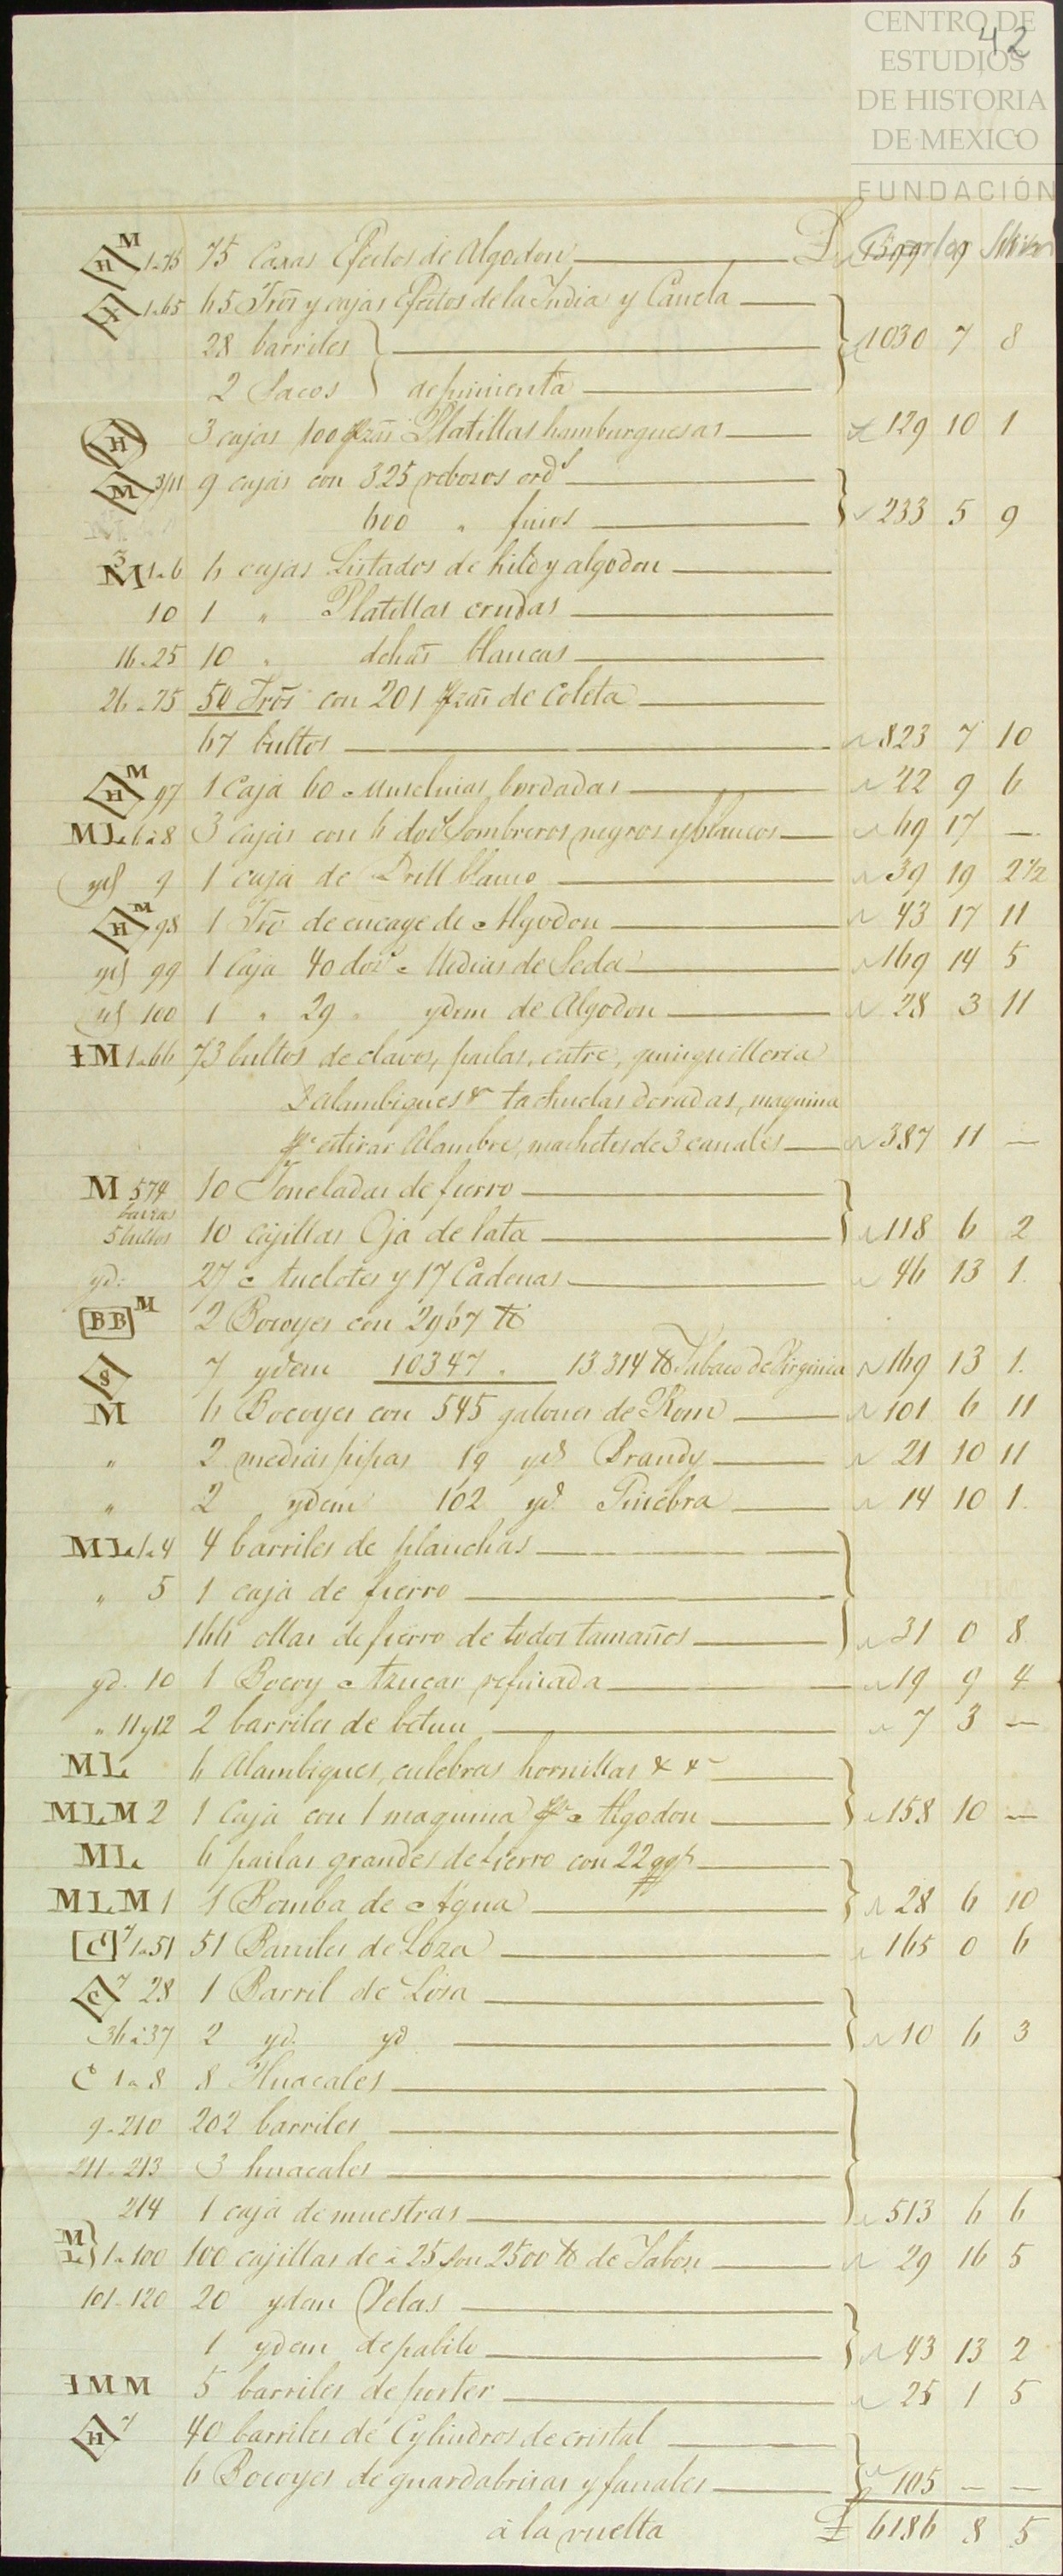 CENTRO DE
ESTUDIOS
DE HISTORIA
DE MEXICO
FUNDACIÓN
42
H M 1-75 75 Caxas Efectos de Algodon £ 1599 9
1-65 65 Tros y cajas Efectos de la India y Canela
28 barriles 1030 7 8
2 Sacos de pimienta
H 3 cajas 100 pzas Platillas hamburguesas 129 10 1
M 3/11 9 cajas con 325 rebozos ords
600 " finos 233 5 9
M 1-6 6 cajas Listados de hilo y algodon
10 1 " Platillas crudas
16-25 10 " dchas blancas
26-75 50 Tros con 201 pzas de Coleta
67 bultos 823 7 10
H M 97 1 Caja 60 Muselinas bordadas 22 9 6
ML 6 a 8 3 cajas con 6 doz Sombreros negros y blancos 69 17 —
yd 9 1 caja de Drill blanco 39 19 2½
H M 98 1 Tro de encage de Algodon 43 17 11
yd 99 1 Caja 40 dozs Medias de Seda 169 14 5
yd 100 1 " 29 " ydem de Algodon 28 3 11
IM 1-66 73 bultos de clavos, pailas, catre, quinquilleria
2 alambiques & tachuelas doradas, maquina
pa estirar Alambre, machetes de 3 canales 387 11 —
M 574 10 Toneladas de fierro
barras
5 bultos 10 cajillas Oja de lata 118 6 2
yd: 27 Anclotes y 17 Cadenas 46 13 1
BB M 2 Bocoyes con 2967 lb
S 7 ydem 10347 " 13314 lb Tabaco de Virginia 169 13 1
M 6 Bocoyes con 545 galones de Rom 101 6 11
" 2 medias pipas 19 yd Brandy 21 10 11
" 2 ydem 102 yd Ginebra 14 10 1
ML 1-4 4 barriles de planchas
" 5 1 caja de fierro
166 ollas de fierro de todos tamaños 31 0 8
yd. 10 1 Bocoy Azucar refinada 19 9 4
" 11 y 12 2 barriles de betun 7 3 —
ML 6 Alambiques, culebras hornillas & &
MLM 2 1 Caja con 1 maquina pa Algodon 158 10 —
ML 6 pailas grandes de fierro con 22 qqs
MLM 1 1 Bomba de Agua 28 6 10
C 1-51 51 Barriles de Loza 165 0 6
C 28 1 Barril de Losa
36 a 37 2 yd. yd 10 6 3
C 1 a 8 8 Huacales
9-210 202 barriles
211-213 3 huacales
214 1 caja de muestras 513 6 6
M L 1-100 100 cajillas de a 25 son 2500 lb de Jabon 29 16 5
101-120 20 ydem Velas
1 ydem de pabilo 43 13 2
IMM 5 barriles de porter 25 1 5
H 40 barriles de Cylindros de cristal
6 Bocoyes de guardabrisas y fanales 105 — —
a la vuelta £ 6186 8 5